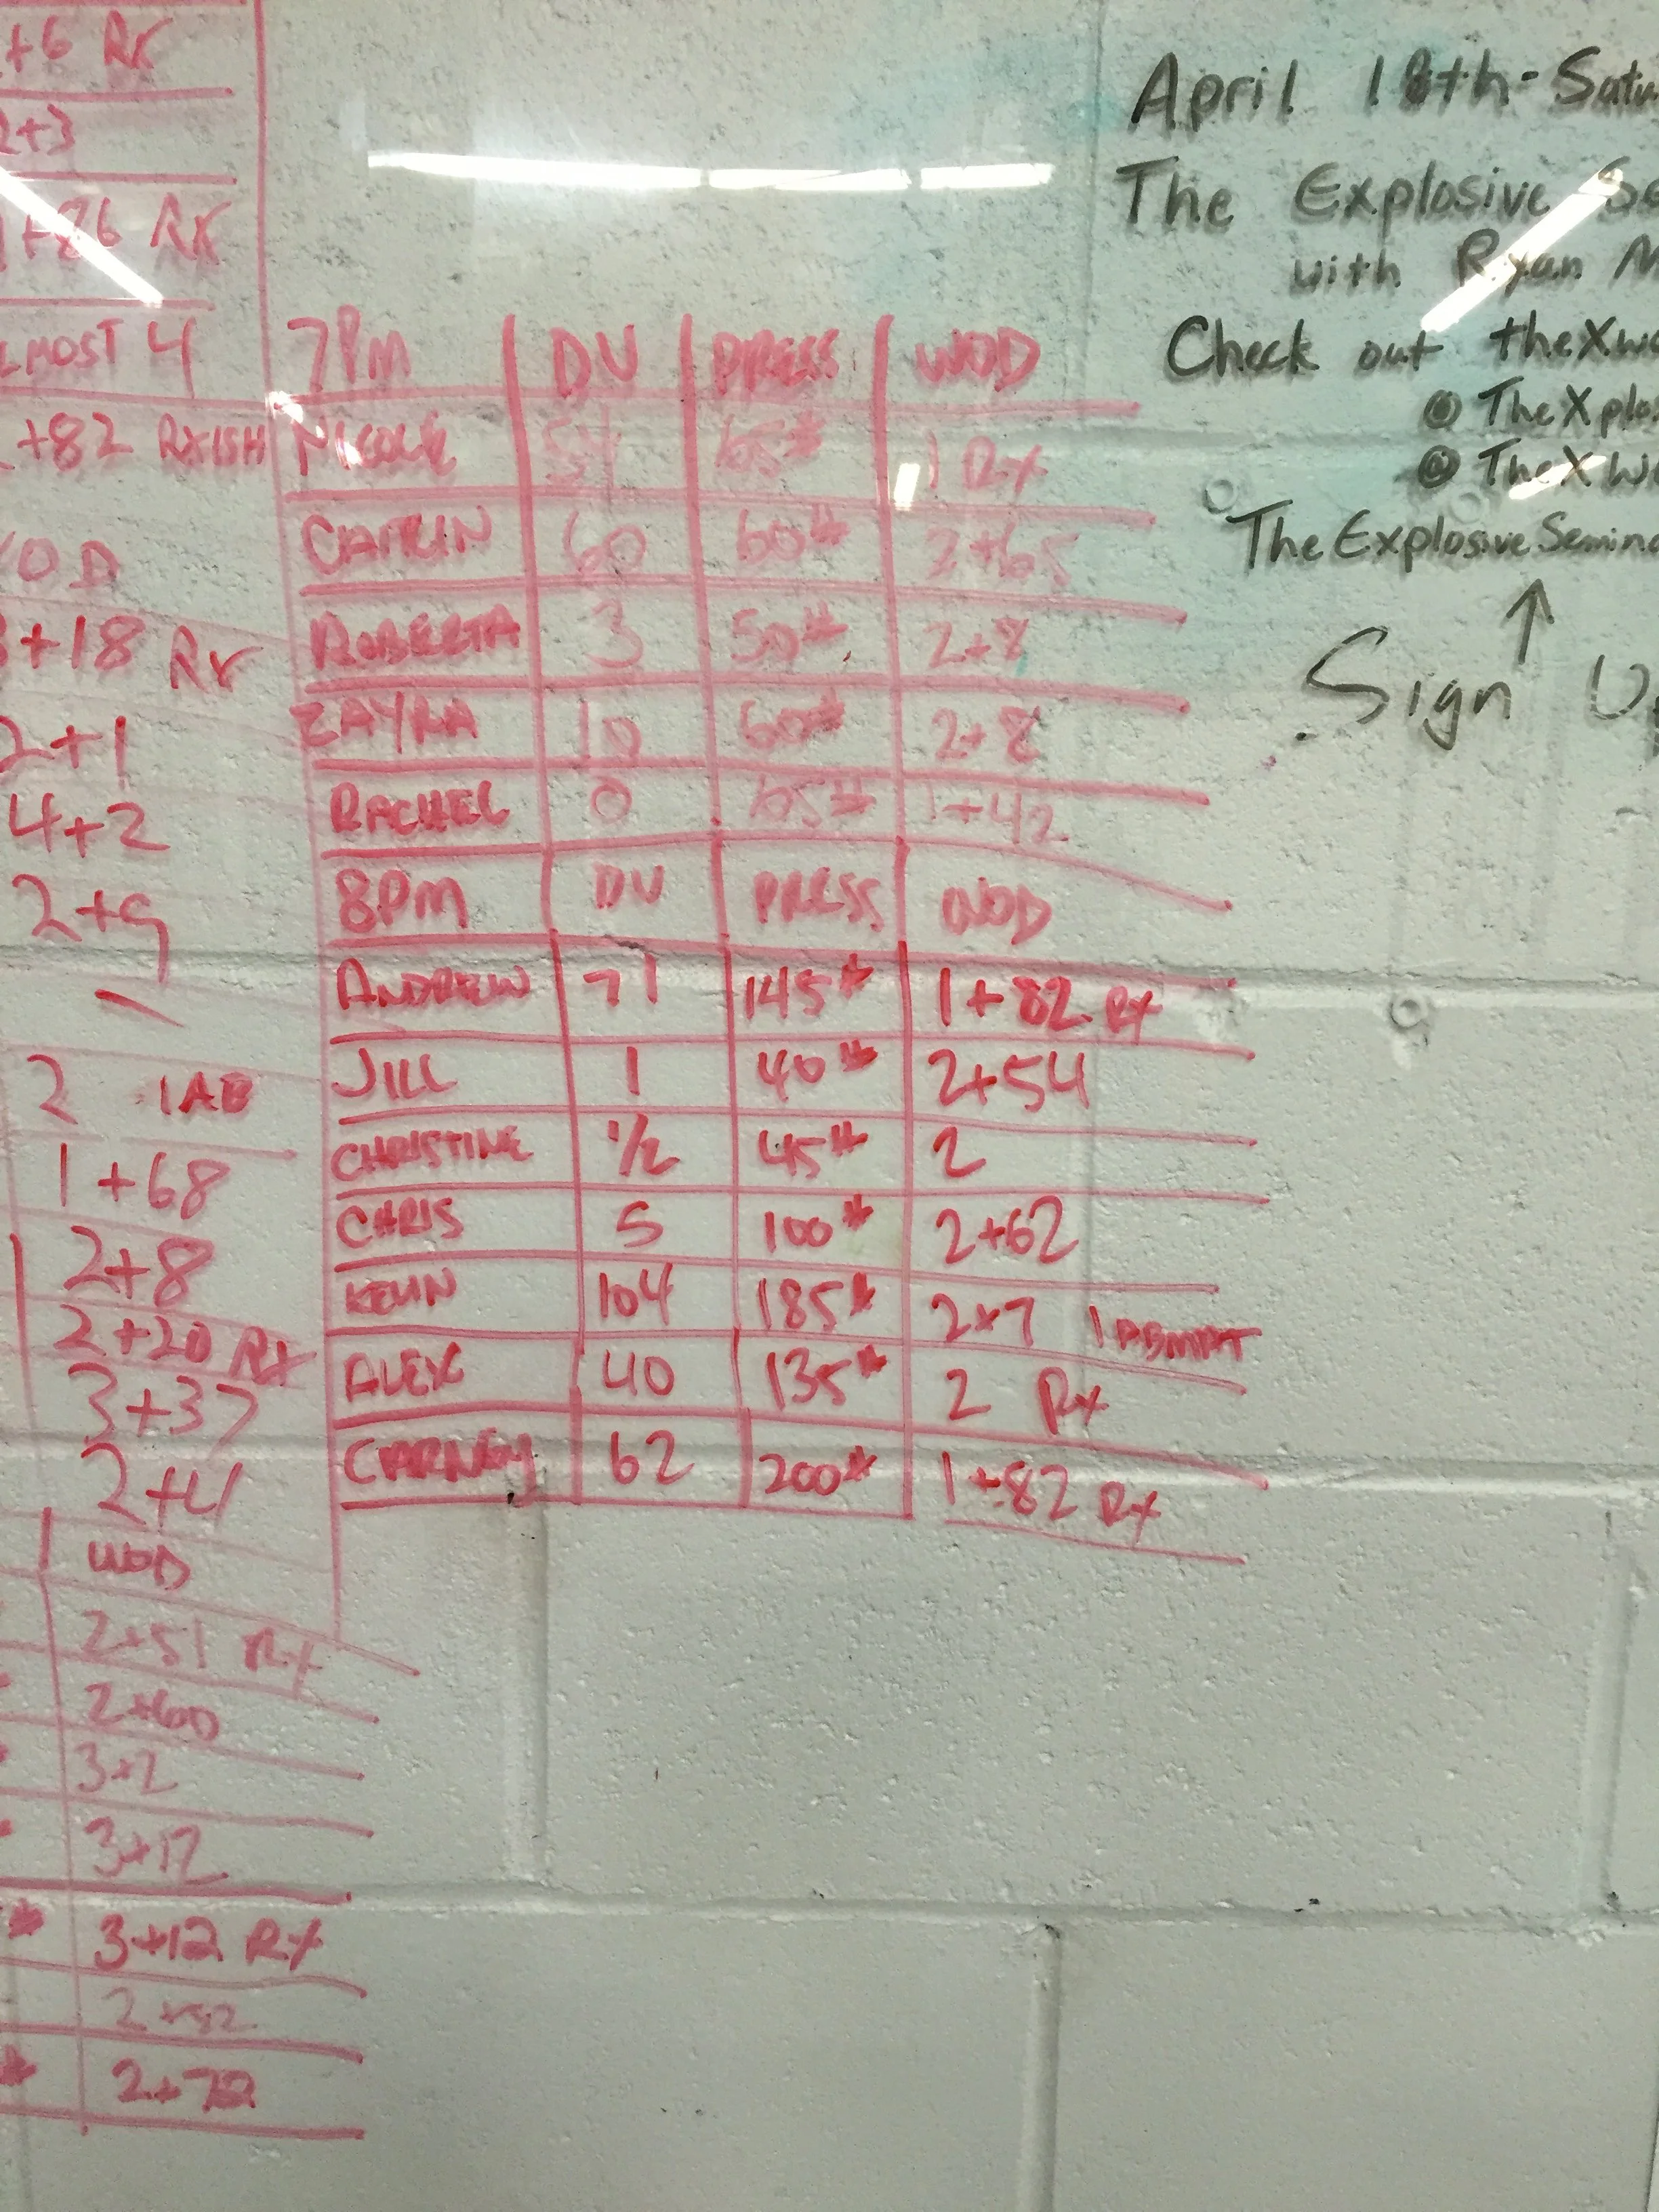 +6 Rx
2+3
+86 RX
LMOST 4
+82 RXISH
OD
+18 Rx
2+1
4+2
2+9
2 1AB
1+68
2+8
2+20 RX
3+37
2+4
WOD
2+51 RX
2+60
3+2
3+12
3+12 RX
2+52
2+72
7PM DU PRESS WOD
NICOLE 65# 1 RX
CAITLIN 60 60# 2+65
ROBERTA 3 50# 2+8
ZAYRA 10 60# 2+8
RACHEL 0 65# 1+42
8PM DU PRESS WOD
ANDREW 71 145# 1+82 RX
JILL 1 40# 2+54
CHRISTINE 1/2 45# 2
CHRIS 5 100# 2+62
KEVIN 104 185# 2+7 1 ABMAT
ALEX 40 135# 2 RX
CARNEY 62 200# 1+82 RX
April 18th - Satu
The Explosive Se
with Ryan M
Check out theXwo
@ TheXplos
@ TheXWo
The Explosive Semina
Sign Up